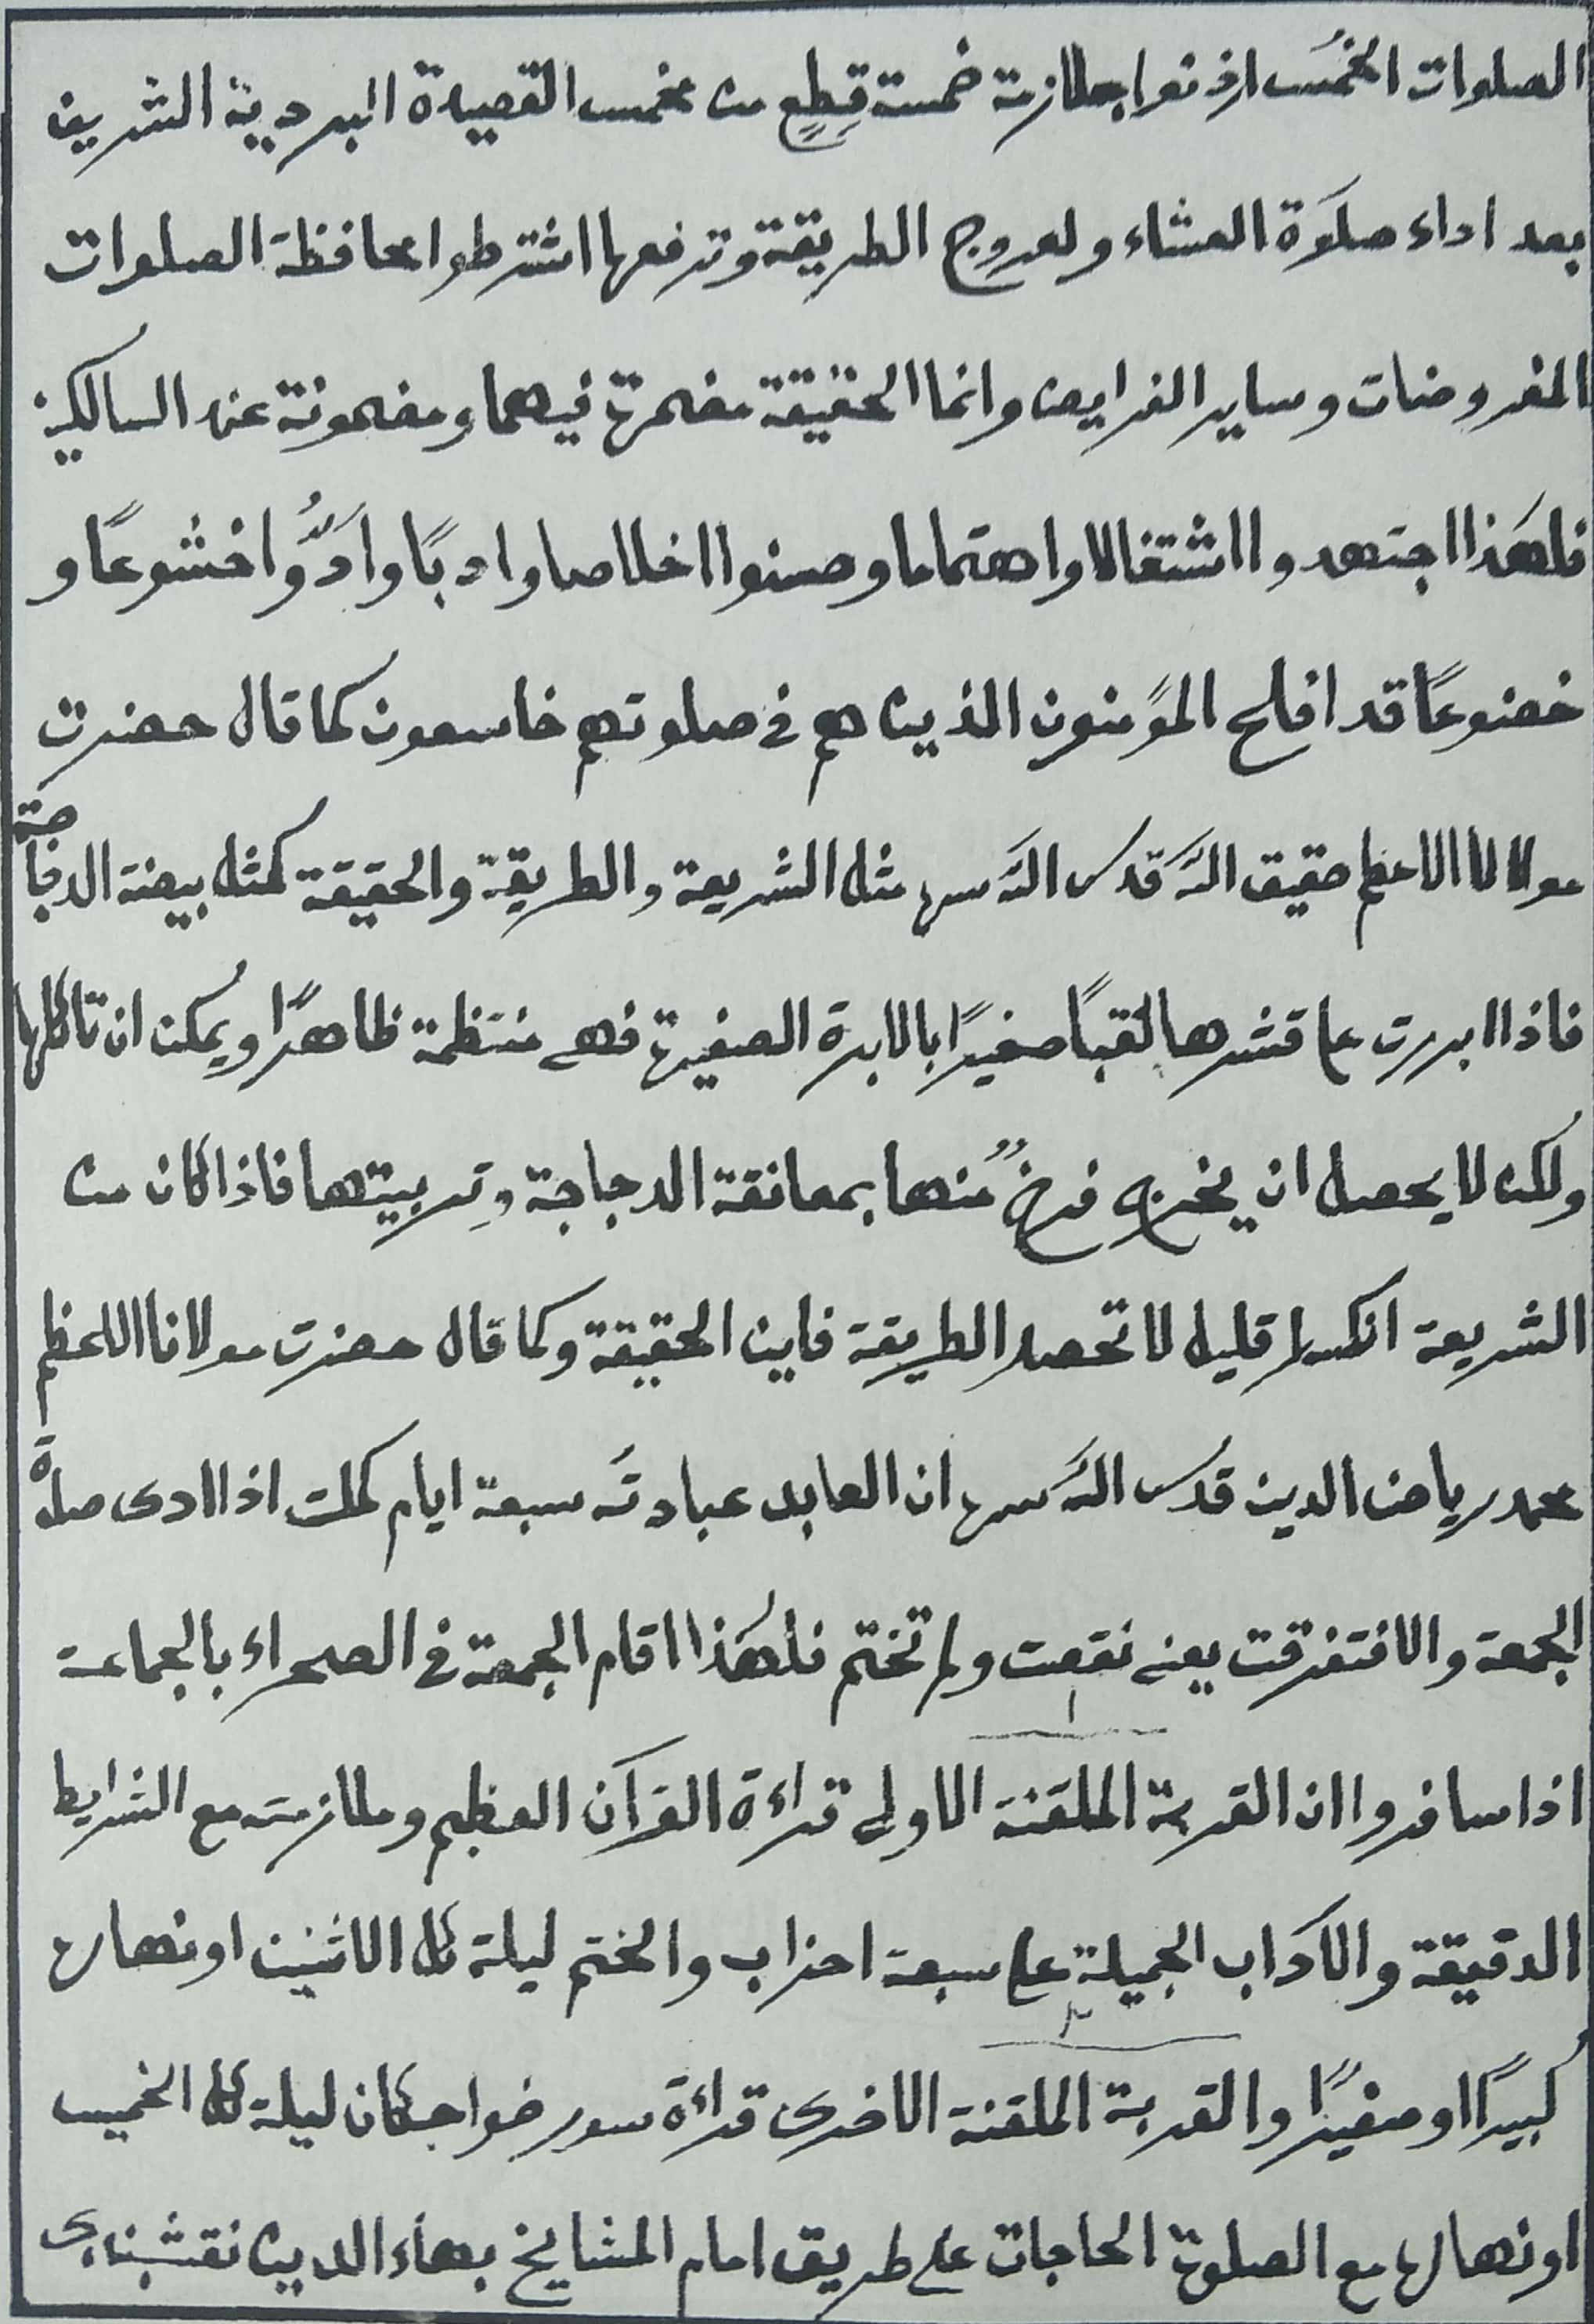 الصلوات الخمس اذنوا بملازمة خمسة قطع من مخمس القصيدة البردية الشريف
بعد اداء صلوة العشاء ولعروج الطريقة وترفعها اشترطوا محافظة الصلوات
المفروضات وساير الفرايض وانما الحقيقة مضمرة فيهما ومضمونة عند السالكين
فلهذا اجتهدوا اشتغالا واهتماما وصنوا اخلاصا وادبًا وادّوا خشوعًا و
خضوعًا قد افلح المؤمنون الذين هم في صلوتهم خاسعون كما قال حضرت
مولانا الاعظم حقيق الله قدس الله سره مثل الشريعة والطريقة والحقيقة كمثل بيضة الدجاجة
فاذا ابررت على قشرها ثقبًا صغيرًا بالابرة الصغيرة فهى منتظمة ظاهرًا ويمكن ان تاكلها
ولكن لا يحصل ان يخرج فرخٌ منها بمعانقة الدجاجة وتربيتها فاذا كان من
الشريعة انكسار قليل لا تحصل الطريقة فاين الحقيقة وكما قال حضرت مولانا الاعظم
محمد رياض الدين قدس الله سره ان العابد عبادته سبعة ايام كملت اذا ادى صلاة
الجمعة والا فتفرقت يعنى نقصت ولم تختم فلهذا اقام الجمعة فى الصحراء بالجماعة
اذا سافروا ان القربة الملقنة الاولى قراءة القرآن العظيم وملازمته مع الشرايط
١
الدقيقة والآداب الجميلة على سبعة احزاب والختم ليلة كل الاثنين او نهاره
كبيرًا او صغيرًا والقربة الملقنة الاخرى قراءة سور خواجكان ليلة كل الخميس
٢
او نهاره مع الصلوة الحاجات على طريق امام المشايخ بهاء الدين نقشبندى